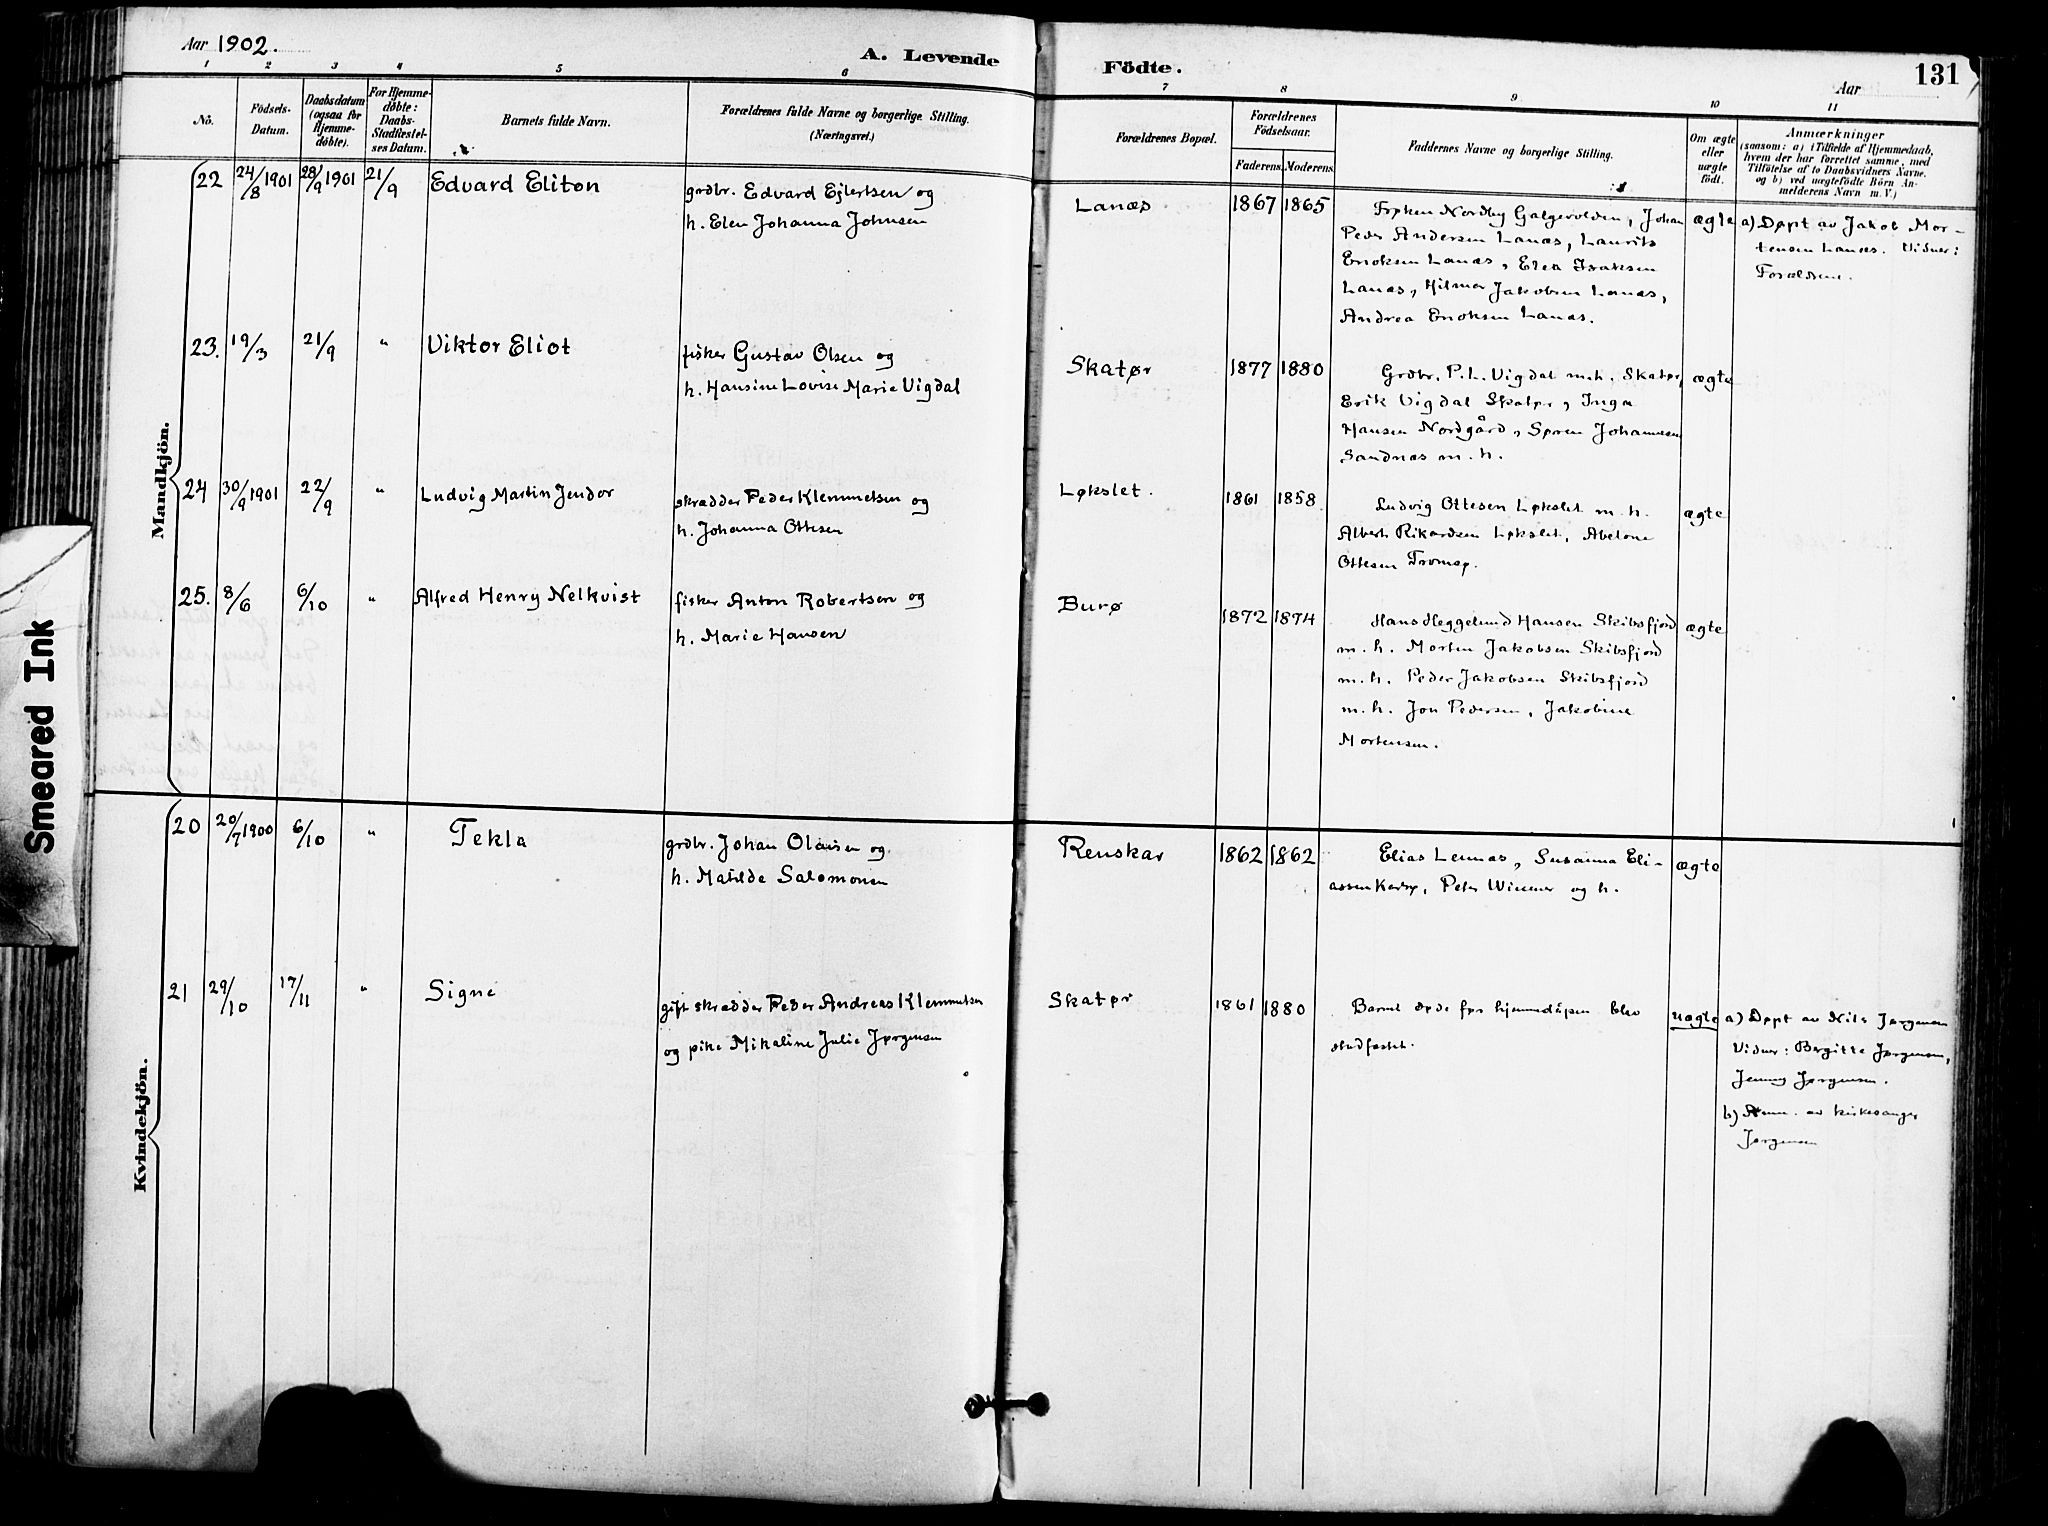 Aar 1902.
A. Levende
Födte.
Aar
131
1 2 3 4 5 6 7 8 9 10 11
No.
Födsels-
Datum.
Daabsdatum
(ogsaa for
Hjemme-
döbte).
For Hjemme-
döbte:
Daabs-
Stadfæstel-
ses Datum.
Barnets fulde Navn.
Forældrenes fulde Navne og borgerlige Stilling.
(Næringsvei.)
Forældrenes Bopæl.
Forældrenes
Födselsaar.
Faderens. Moderens.
Faddernes Navne og borgerlige Stilling.
Om ægte
eller
uægte
födt.
Anmærkninger
(saasom: a) i Tilfælde af Hjemmedaab,
hvem der har forrettet samme, med
Tilföielse af to Daabsvidners Navne.
og b) ved uægtefödte Börn An-
melderens Navn m. V.)
Mandkjön.
22 24/8 1901 28/9 1901 21/9 Edvard Eliton
grdbr. Edvard Ejlertsen og
h. Elen Johanna Johnsen
Lanæs 1867 1865
Frøken Nordby Galgervolden, Johan
Peder Andersen Lanæs, Laurits
Enoksen Lanæs, Elea Isaksen
Lanæs, Hilmar Jakobsen Lanæs,
Andrea Enoksen Lanæs.
ægte
a) Døpt av Jakob Mor-
tensen Lanæs. Vidner:
Forældrene.
23. 19/3 21/9 " Viktor Eliot
fisker Gustav Olsen og
h. Hansine Lovise Marie Vigdal
Skatør 1877 1880
Grdbr. P. L. Vigdal m. h. Skatør,
Erik Vigdal Skatør, Inga
Hansen Nordgård, Søren Johannesen
Sandnæs m. h.
ægte
24 30/9 1901 22/9 " Ludvig Martin Jendor
skrædder Peder Klemmetsen og
h. Johanna Ottesen
Løkslet. 1861 1858
Ludvig Ottesen Løkslet m. h.
Albert Rikardsen Løkslet, Abelone
Ottesen Tromsø.
ægte
25. 8/6 6/10 " Alfred Henry Nelkvist
fisker Anton Robertsen og
h. Marie Hansen
Burø 1872 1874
Hans Heggelund Hansen Skibsfjord
m. h. Morten Jakobsen Skibsfjord
m. h. Peder Jakobsen Skibsfjord
m. h. Jon Pedersen, Jakobine
Mortensen.
ægte
Kvindekjön.
20 20/7 1900 6/10 " Tekla
grdbr. Johan Olaisen og
h. Matilde Salomonsen
Renskar 1862 1862
Elias Lennas, Susanna Eli-
assen Karlsø, Peter Wimmer og h.
ægte
21 29/10 17/11 " Signe
gift skrædder Peder Andreas Klemmetsen
og pike Mikaline Julie Jørgensen
Skatør 1861 1880
Barnet døde før hjemmedåpen blev
stadfæstet.
uægte
a) Døpt av Nils Jørgensen
Vidner: Bergitte Jørgensen,
Jenny Jørgensen.
b) Anm. av kirkesanger
Jørgensen
Smeared Ink